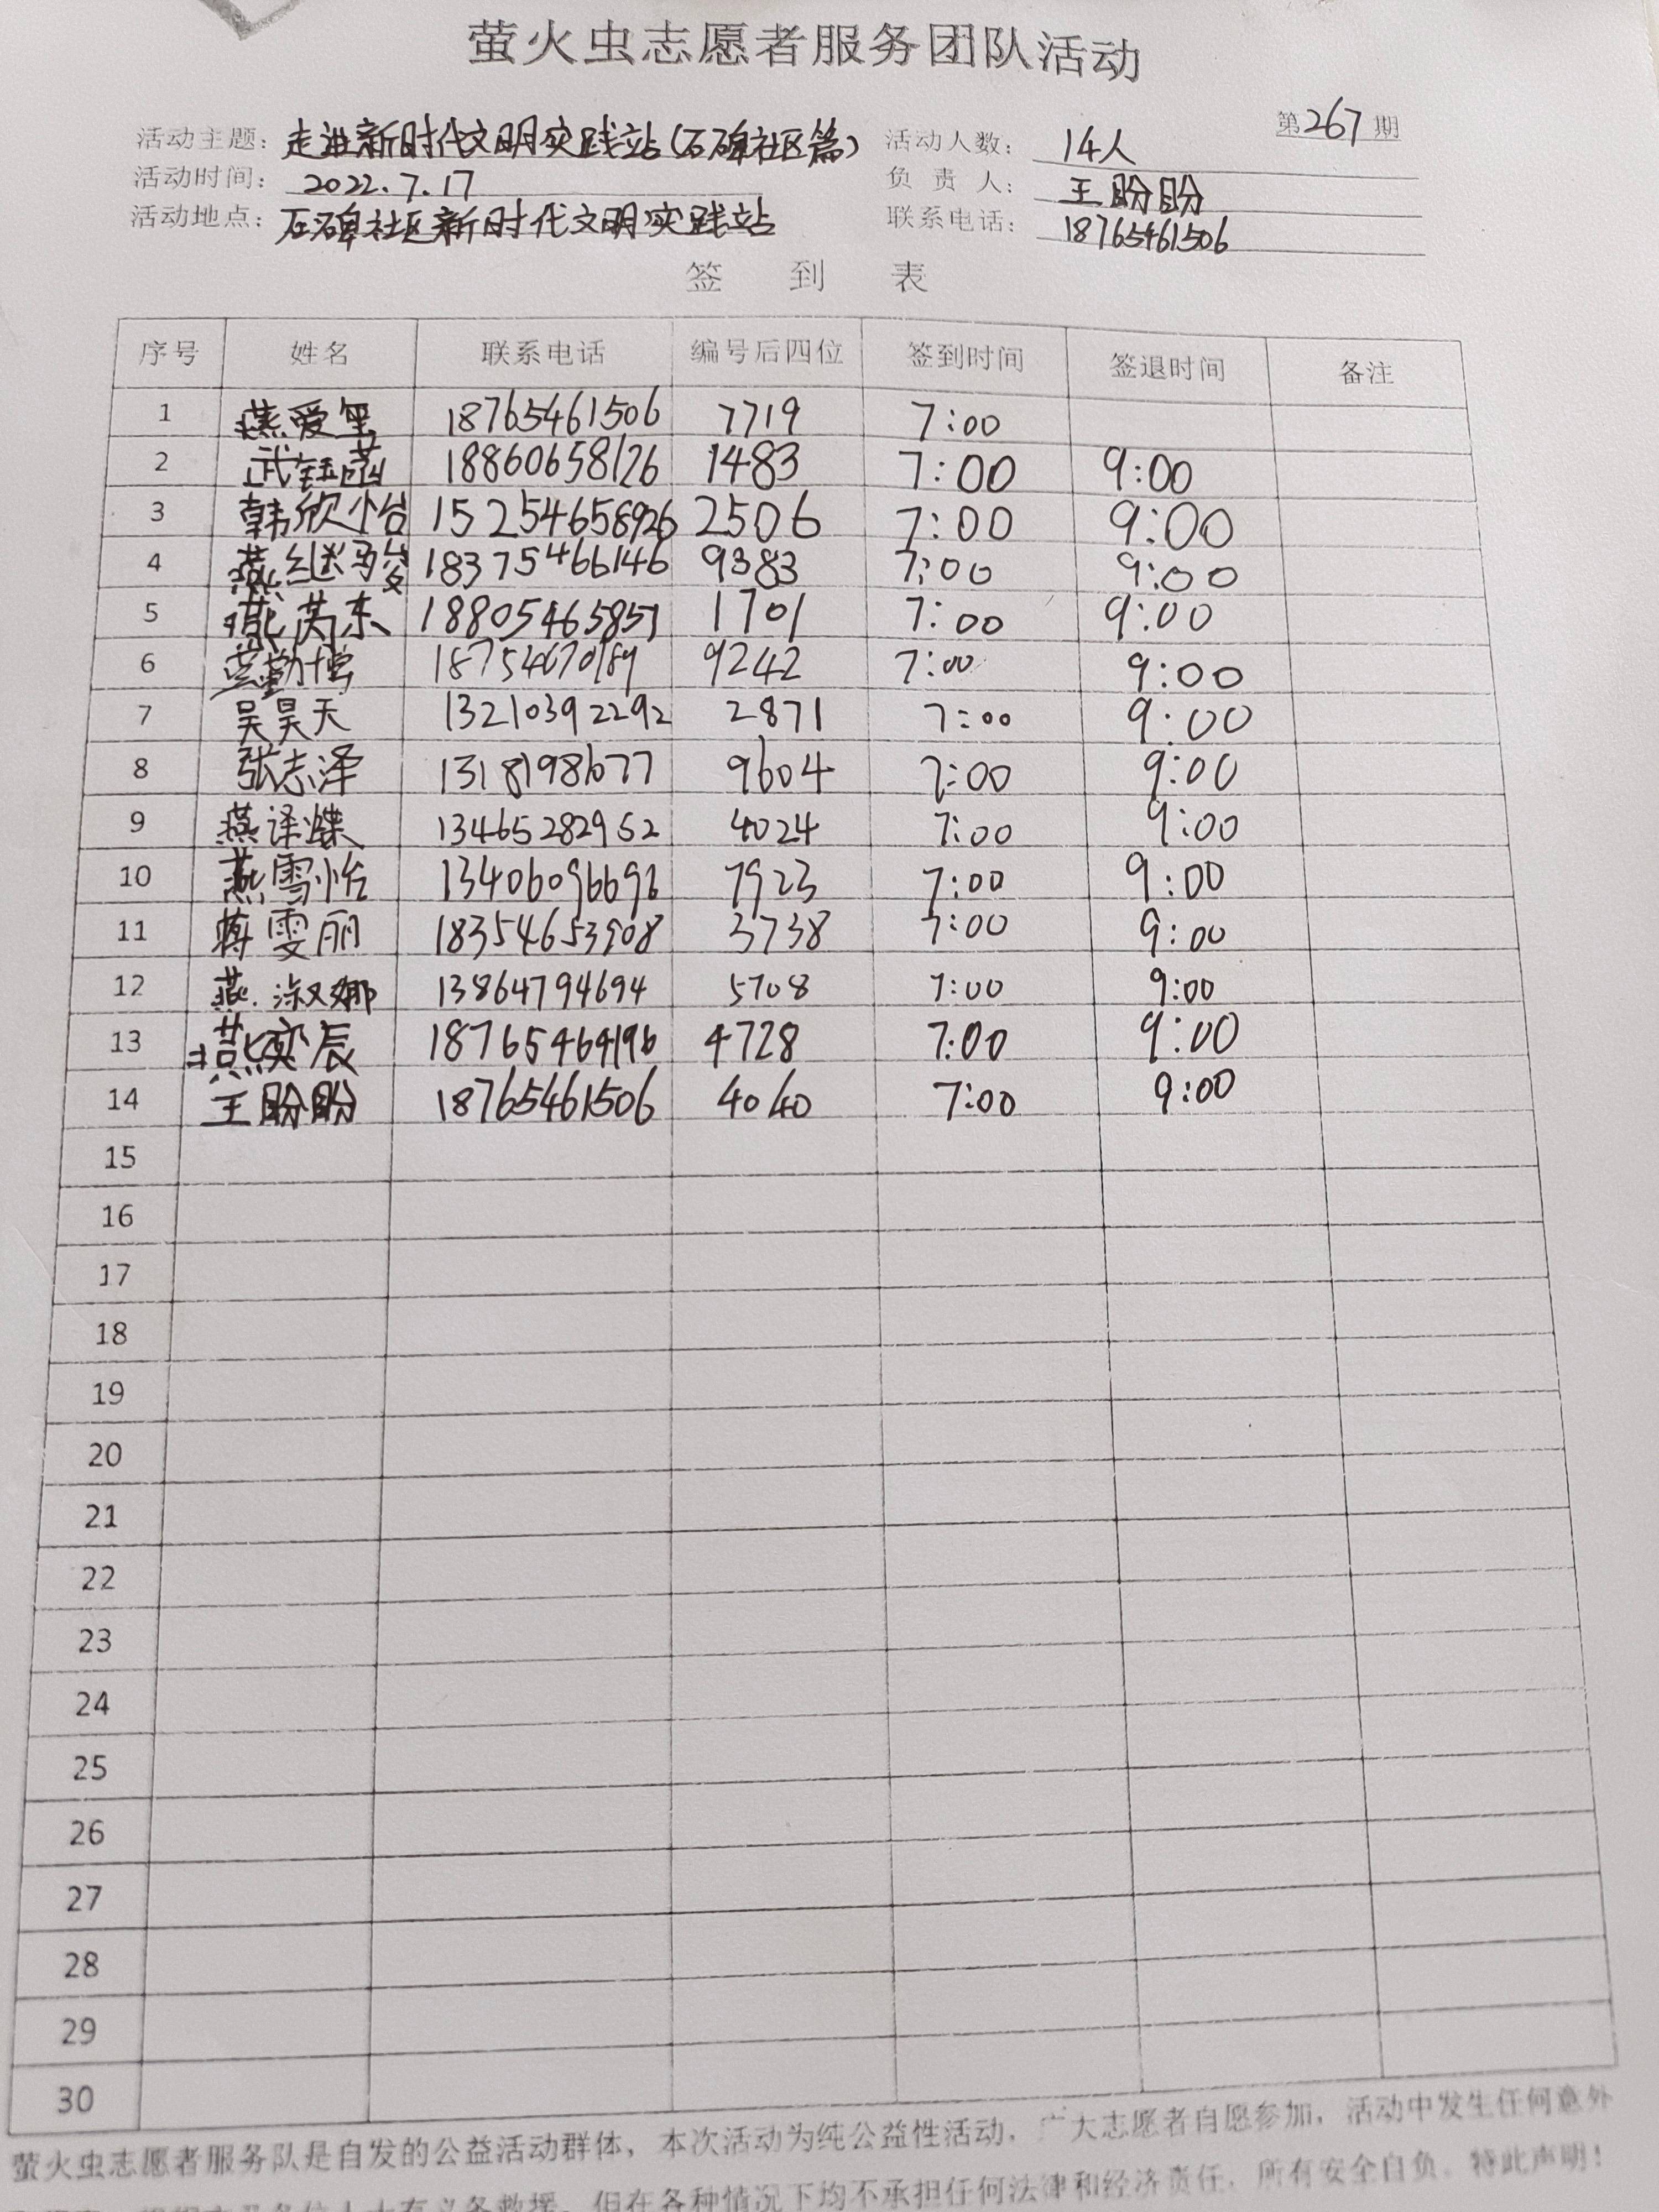 萤火虫志愿者服务团队活动
第267期
活动主题: 走进新时代文明实践站(石碑社区篇) 活动人数: 14人
活动时间: 2022.7.17 负责人: 王盼盼
活动地点: 石碑社区新时代文明实践站 联系电话: 18765461506
签到表
序号 姓名 联系电话 编号后四位 签到时间 签退时间 备注
1 燕爱里 18765461506 7719 7:00
2 武钰菡 18860658126 1483 7:00 9:00
3 韩欣怡 15254658926 2506 7:00 9:00
4 燕继骏 18375466146 9383 7:00 9:00
5 燕芮东 18805465851 1701 7:00 9:00
6 勤博 18754670189 9242 7:00 9:00
7 吴昊天 13210392292 2871 7:00 9:00
8 张志泽 13181981677 9604 7:00 9:00
9 燕译蝶 13465282952 4024 7:00 9:00
10 燕雪怡 13406096696 7923 7:00 9:00
11 蒋雯丽 18354653908 3738 7:00 9:00
12 燕淑娜 13864794694 5708 7:00 9:00
13 燕奕辰 18765464196 4728 7:00 9:00
14 王盼盼 18765461506 4040 7:00 9:00
15
16
17
18
19
20
21
22
23
24
25
26
27
28
29
30
萤火虫志愿者服务队是自发的公益活动群体，本次活动为纯公益性活动，广大志愿者自愿参加，活动中发生任何意外
有义务救援，但在各种情况下均不承担任何法律和经济责任，所有安全自负。特此声明!